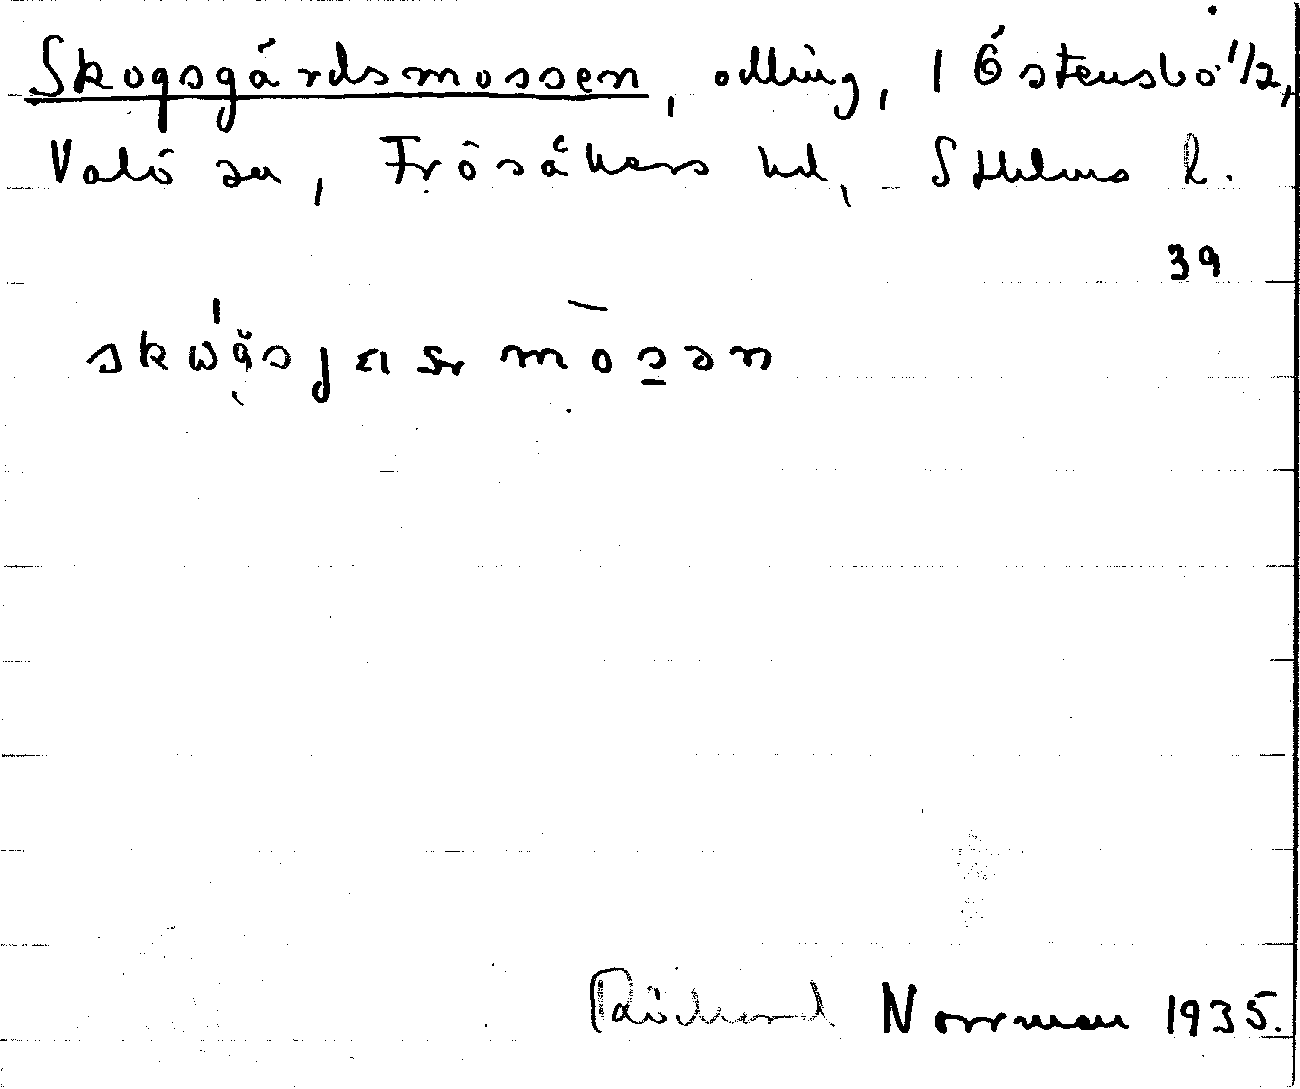 Skogsgårdsmossen, odling, 1 Östensbo 1/2,
Valö sn, Frösåkers hd, Sthlms l.
39
Norrman 1935.